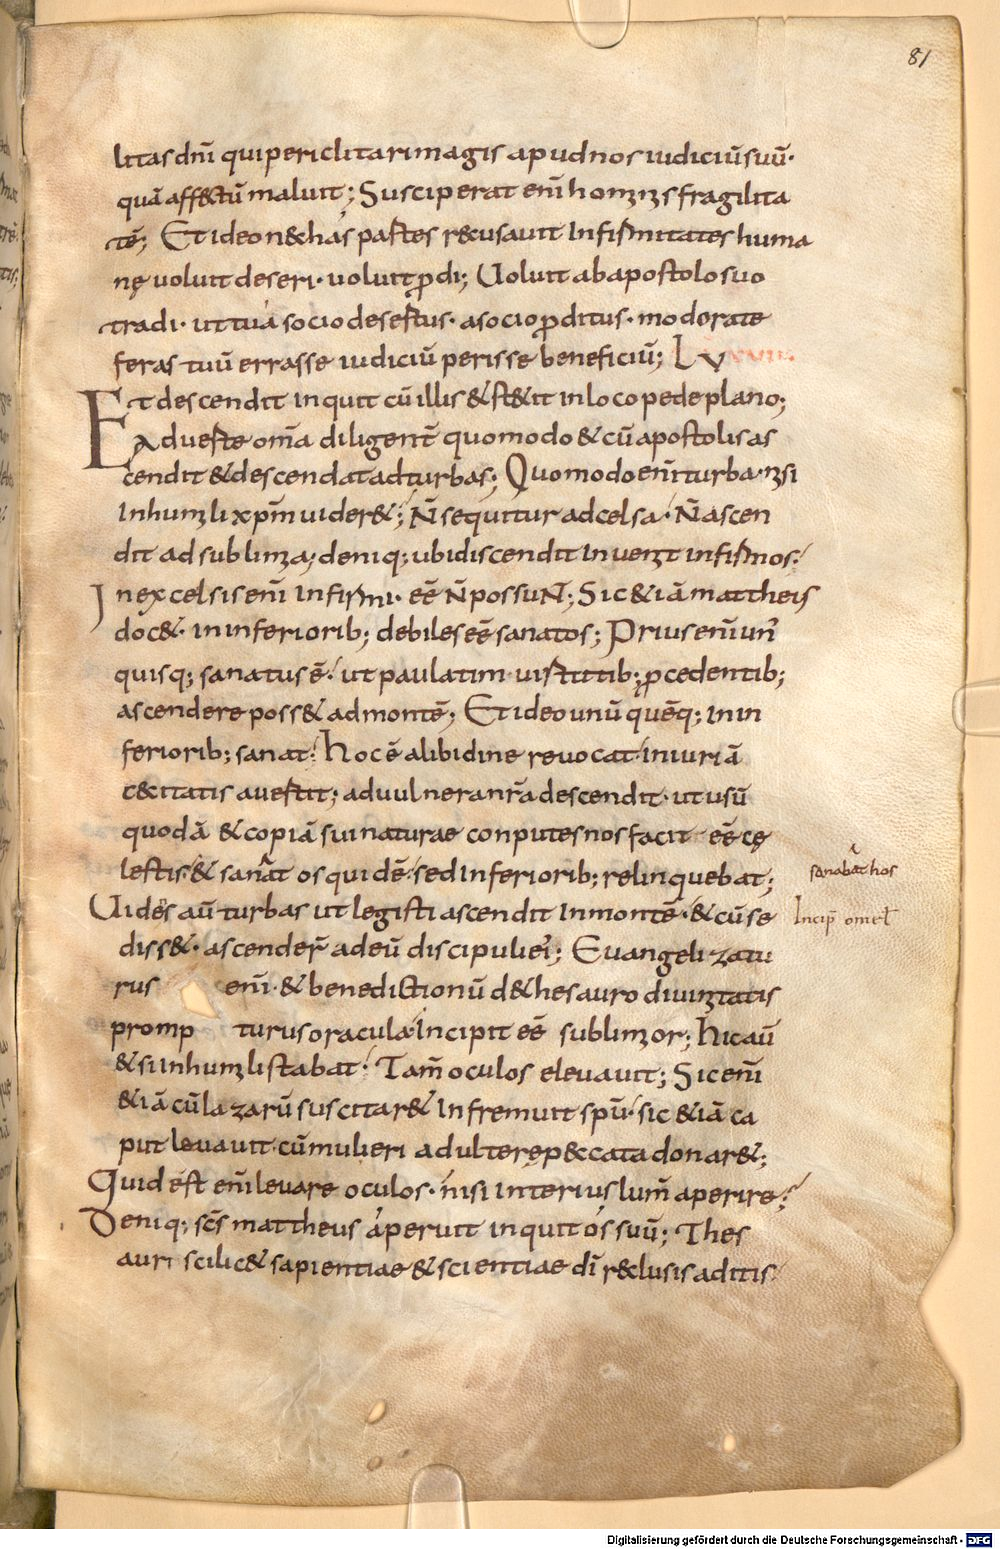 81
litas dnī qui periclitari magis apud nos iudiciū suū·
quā affectū maluit; Susceperat enī hominis fragilita
tē; Et ideo n& has partes recusauit infirmitates huma
nę uoluit deseri· uoluit ꝓdi; Uoluit ab apostolo suo
tradi· ut tu a socio desertus· a socio ꝓditus· moderate
feras tuū errasse iudiciū perisse beneficiū; LV
Et descendit inquit cū illis & st&it in loco pede plano;
Aduerte oma diligent̄ quomodo & cū apostolis as
cendit & descendat ad turbas; Quomodo enī turba nisi
in humili xpm uider&; N̄ sequitur ad celsa· N̄ ascen
dit ad sublimia; deniq; ubi discendit inuenit infirmos·
In excelsis enī infirmi· eē n̄ possunt; Sic & iā mattheus
doc&· in inferiorib; debiles eē sanatos; Prius enī un'
quisq; sanatus ē· ut paulatim uirtutib; ꝓcedentib;
ascendere poss& ad montē; Et ideo unū quēq; in in
feriorib; sanat· hoc ē a libidine reuocat· iniuriā
c&citatis auertit; ad uulnera nr̄a descendit· ut usū
quodā & copiā sui naturae conputes nos facit eē cę
lestis· & sanat os quidē· sed inferiorib; relinquebat;
sanabat hos
Uides aū turbas ut legisti ascendit in montē· & cū se
Incip̄ omeł
diss&· ascender̄ ad eū discipuli ei'; Euangelizatu
rus enī· & benedictionū de thesauro diuinitatis
promp turus oracula· Incipit eē sublimior; hic aū
& si in humili stabat· Tam̄ oculos eleuauit; Sic enī
& iā cū lazarū suscitar& infremuit spū· sic & iā ca
put leuauit· cū mulieri adulterę peccata donar&;
Quid est enī leuare oculos· nisi interius lum̄ aperire;
Deniq; scs̄ mattheus aperuit inquit os suū; Thes
auri scilic& sapientiae & scientiae dī reclusis aditis
Digitalisierung gefördert durch die Deutsche Forschungsgemeinschaft - DFG